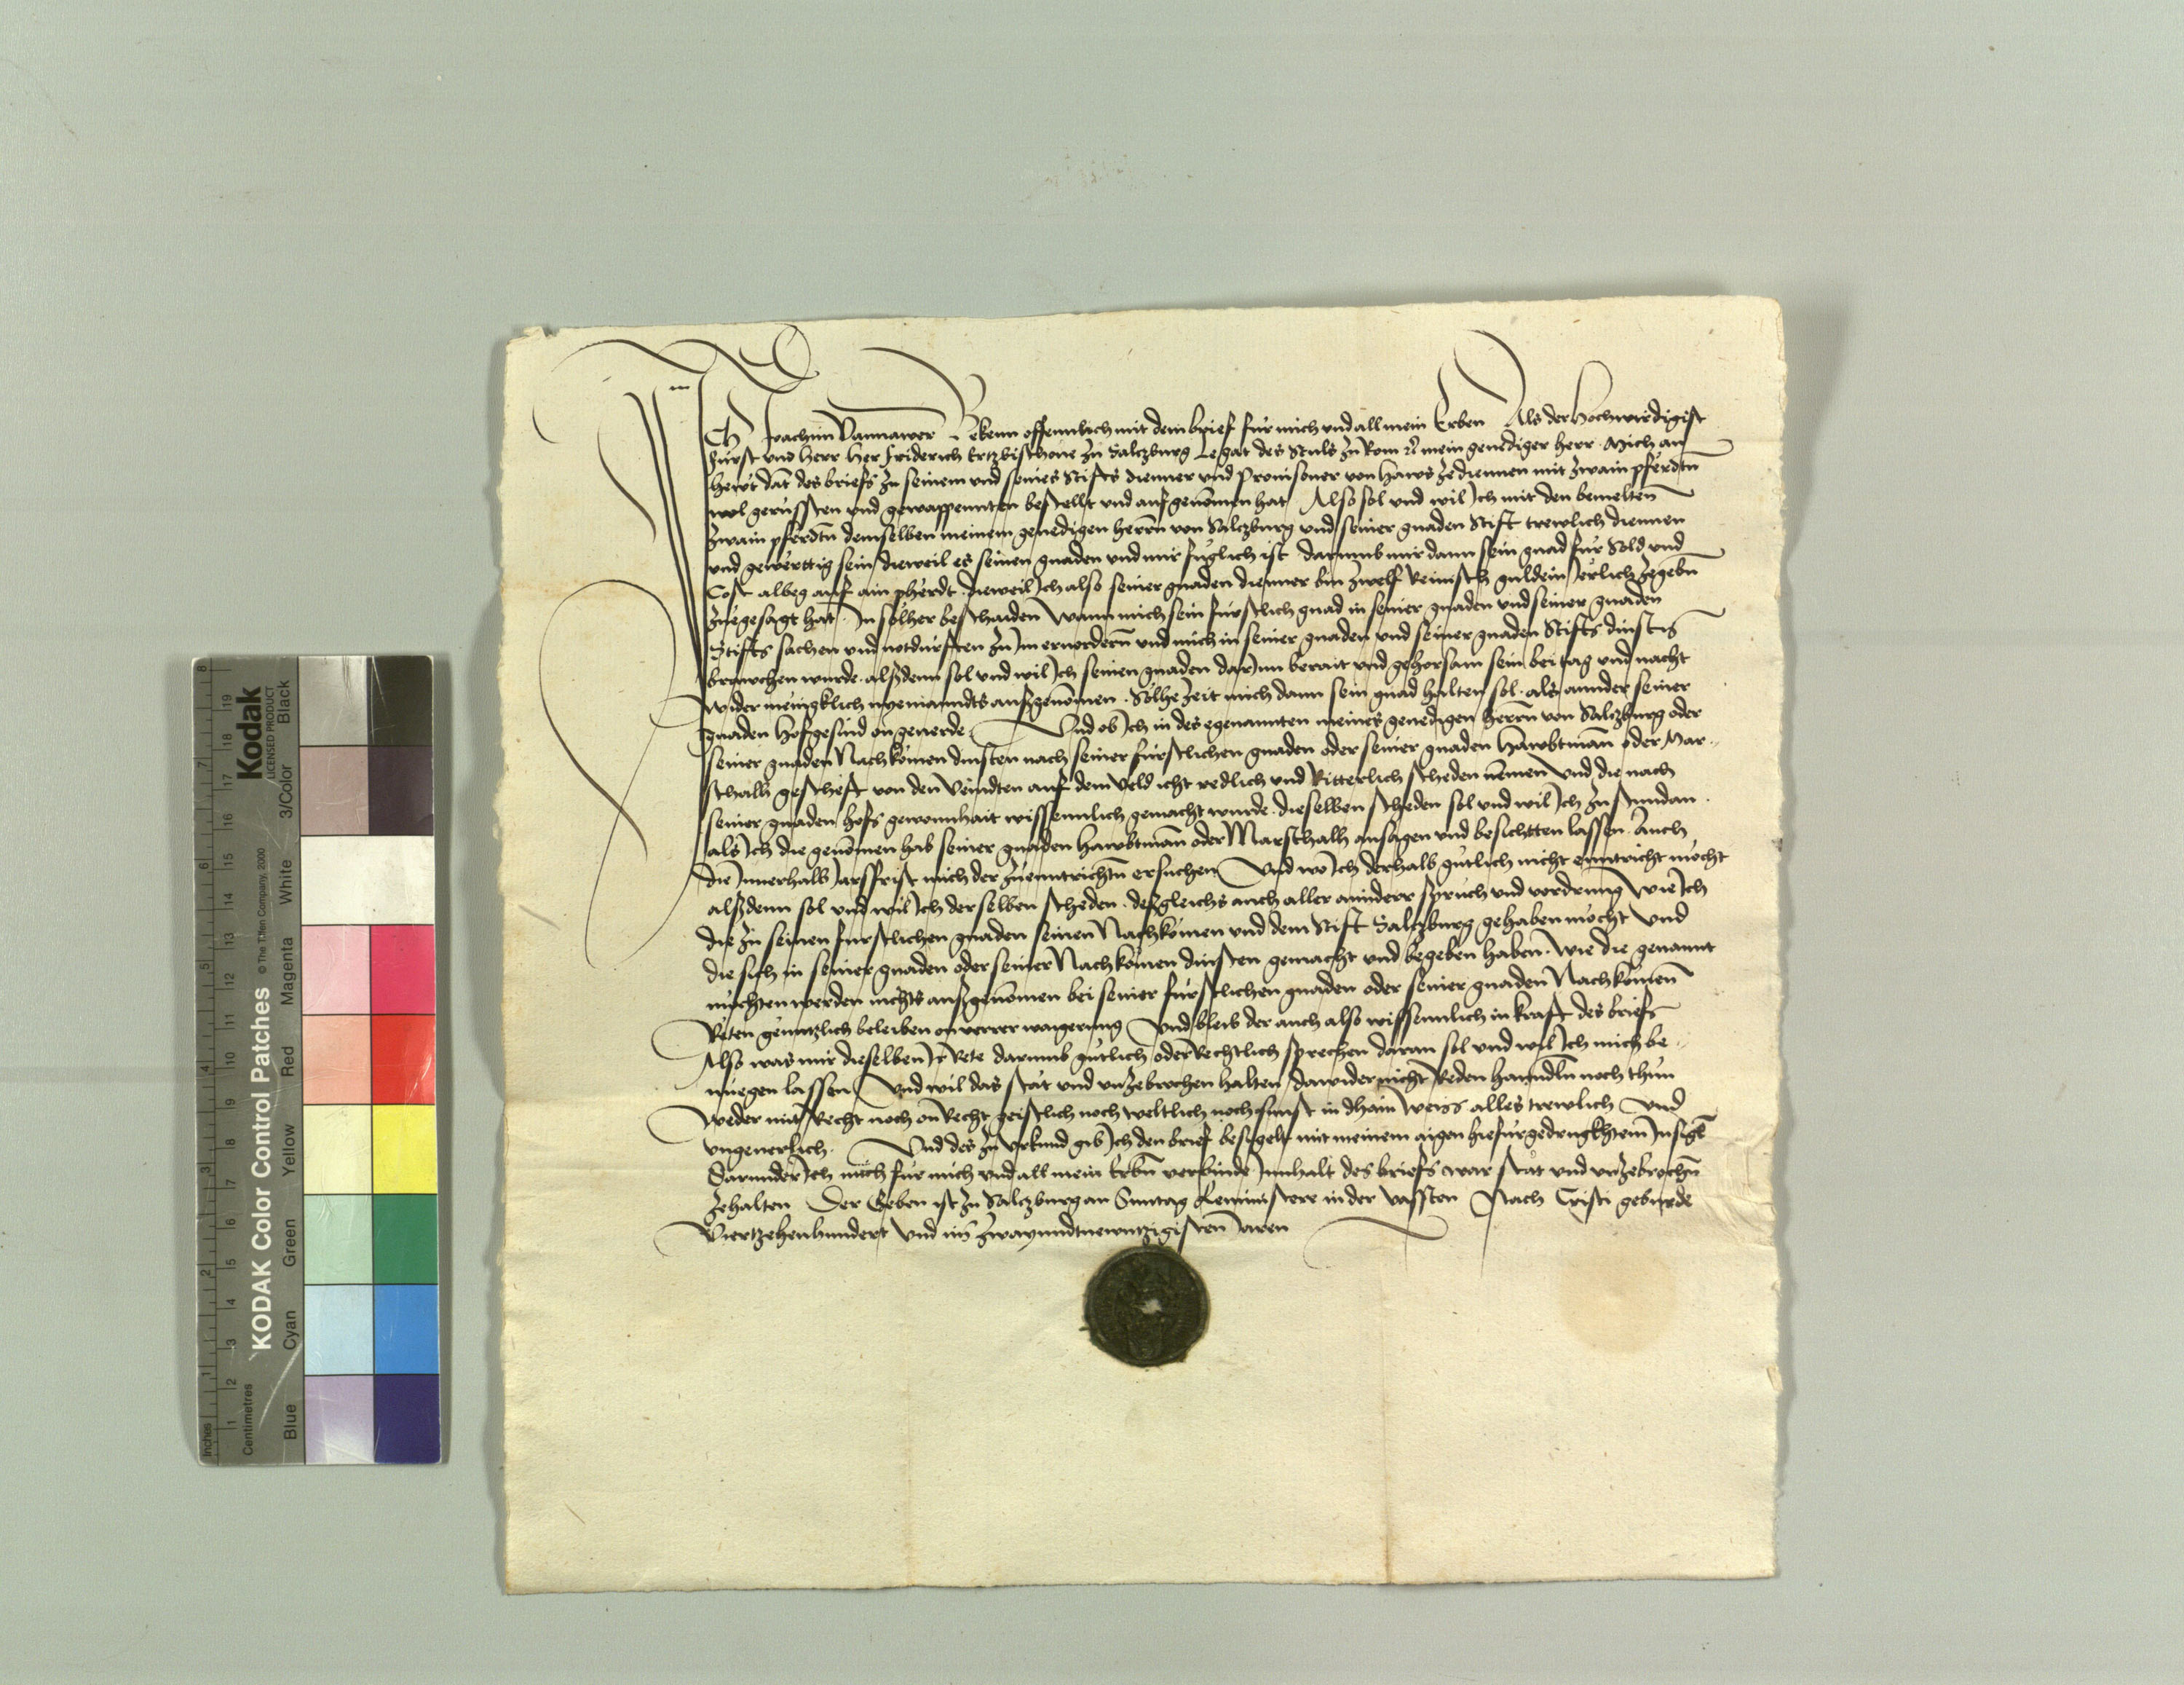 Ich Joachim Dannawer Bekenn offennlich mit dem brief fur mich und all mein Erben Als der Hochwirdigist
Fürst und herr her Friderich Ertzbischove zu Saltzburg Legat des Stuls zu Rom etc mein genediger herr. Mich an
hewt dat des briefs zu seinem und seines Stifts diener und Provisoner von haws zediennen mit zwain pferdtn
wol gerussten und gewappennten bestellt und aufgenomen hat Also sol und wil Ich mit den bemelten
zwain pferdtn demselben meinem genedigen herrn von Saltzburg und seiner gnaden Stift trewlich diennen
und gewerttig sein, dieweil es seinen gnaden und mir fuglich ist darumb mir dann sein gnad fur Sold und
Cost albeg auf ain pherdt, dieweil Ich also seiner gnaden diener bin zwelf Reinisch guldein Jerlich zegebn
zuegesagt hat. In solher beschaiden Wann mich sein furstlich gnad in seiner gnaden und seiner gnaden
Stifts sachen und notdurften zu Im ervordern und mich in seiner gnaden und seiner gnaden Stifts dinstn
brawchen wurde. alßdenn sol und wil Ich seinen gnaden darInn berait und gehorsam sein bei tag und nacht
wider menigklich nyemanndts außgenomen. Solhe zeit mich dann sein gnad halten sol. als annder seiner
gnaden hofgesind on geverde. Und ob Ich in des egenannten meines genedigen herrn von Saltzburg oder
seiner gnaden Nachkomen dinsten nach seiner furstlichen gnaden oder seiner gnaden hawbtman oder Mar-
schalh gescheft von den Veindten auf dem Veld icht redlich und Ritterlich scheden nemen Und die nach
seiner gnaden hofs gewonnhait wissennlich gemacht wurde. dieselben scheden sol und wil Ich zu stundan
als Ich die genomen hab seiner gnaden hawbtman oder Marschalh ansagen und besichtten lassen. Auch
die Innerhalb Jarsfrist mich der zuenntrichtn ersuchen Und wo Ich derhalb gutlich nicht enntricht mocht
alßdenn sol und wil Ich derselben scheden. deßgleichs auch aller annderr spruch und vordrung wie Ich
die zu seinen furstlichen gnaden seinen Nachkomen und dem Stift Saltzburg gehaben mocht Und
die sich in seiner gnaden oder seiner Nachkomen dinsten gemacht und begeben haben. Wie die genannt
mochten werden nichts außgenomen bei seiner furstlichen gnaden oder seiner gnaden Nachkomen
Reten genntzlich beleiben on verrer waigerung Und bleib der auch also wissennlich in kraft des briefs
Also was mir dieselben Ir Rete darumb gutlich oder Rechtlich sprechen daran sol und wil Ich mich be-
nuegen lassen Und wil das stat und unzebrochen halten dawider nicht Reden hanndln noch thun
Weder mit Recht noch on Recht geistlich noch weltlich noch sunst in dhain weiss alles trewlich Und
ungeverlich. Und des zu Urkund gib Ich den brief besigelt mit meinem aigen hiefurgedrugkhtem Insigl
Darunder Ich mich fur mich und all mein Erbn verbinde Innhalt des briefs war stat und unzebrochn
zehalten Der Geben ist zu Saltzburg an Sunntag Reminiscere in der Vassten Nach Cristi geburde
Viertzehenhundert Und im zwayundtnewntzigisten Jaren
Kodak
LICENSED PRODUCT
KODAK Color Control Patches
© The Tiffen Company, 2000
Centimetres
Inches
Blue Cyan Green Yellow Red Magenta White 3/Color Black
1 2 3 4 5 6 7 8 9 10 11 12 13 14 15 16 17 18 19
1 2 3 4 5 6 7 8